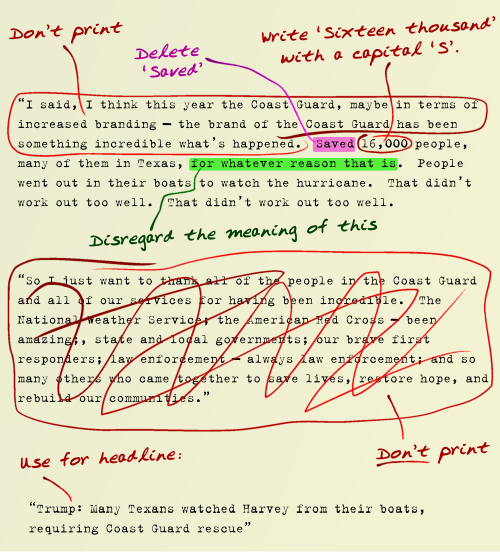 Don't print
Delete
'Saved'
Write 'Sixteen thousand'
with a capital 'S'.
“I said, I think this year the Coast Guard, maybe in terms of
increased branding — the brand of the Coast Guard has been
something incredible what's happened. Saved 16,000 people,
many of them in Texas, for whatever reason that is. People
went out in their boats to watch the hurricane. That didn't
work out too well. That didn't work out too well.
Disregard the meaning of this
“So I just want to thank all of the people in the Coast Guard
and all of our services for having been incredible. The
National Weather Service; the American Red Cross — been
amazing;, state and local governments; our brave first
responders; law enforcement — always law enforcement; and so
many others who came together to save lives, restore hope, and
rebuild our communities.”
Don't print
Use for headline:
“Trump: Many Texans watched Harvey from their boats,
requiring Coast Guard rescue”